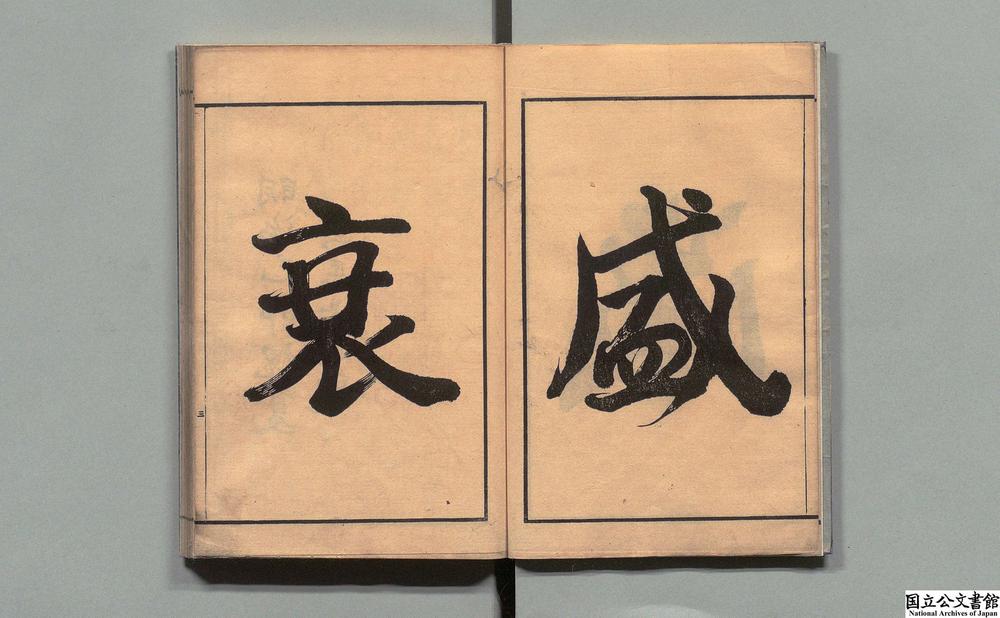 盛
衰
三
国立公文書館
National Archives of Japan